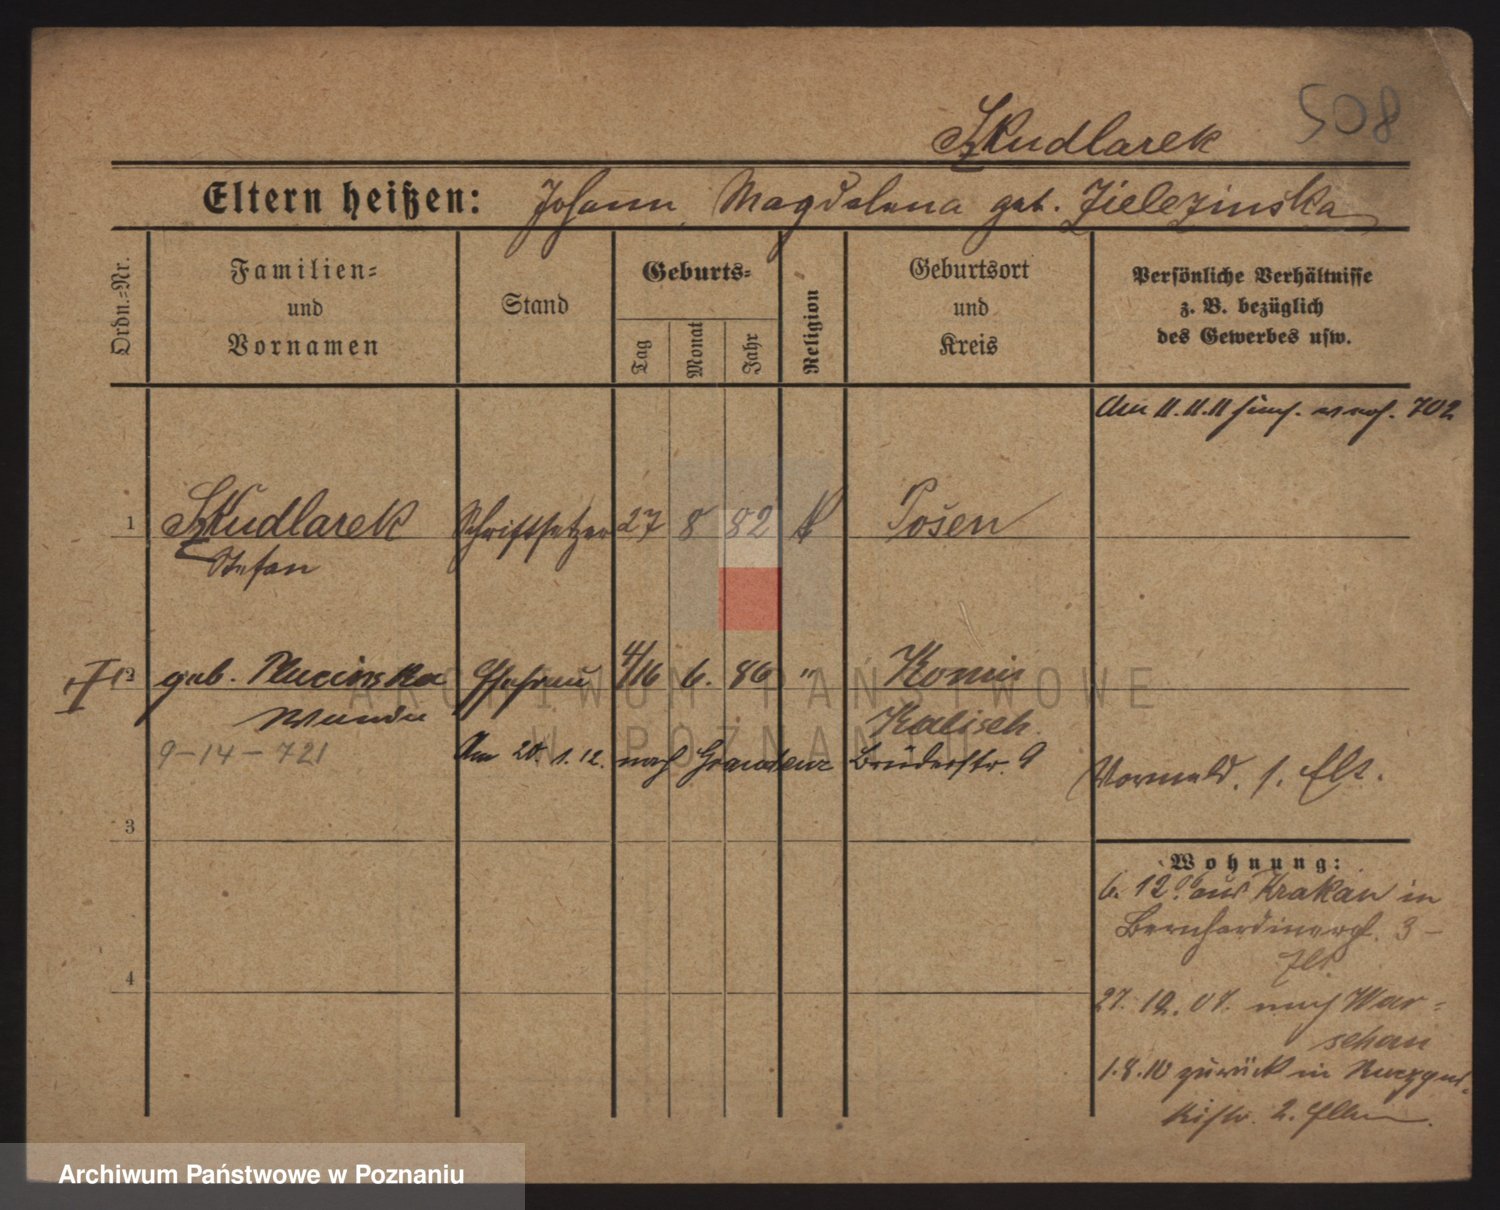 508
Skudlarek
Eltern heißen: Johann, Magdalena geb. Zielezinska
Ordn.-Nr.
Familien- und Vornamen
Stand
Geburts-
Tag
Monat
Jahr
Religion
Geburtsort und Kreis
Persönliche Verhältnisse z. B. bezüglich des Gewerbes usw.
Am 11.11.11 nach. 702
1 Skudlarek Schriftsetzer 27 8 82 k Posen
Stefan
2 geb. Plucinska Ehefrau 4/16 6. 86 " Konin
Wanda Kalisch
9-14-721 Am 20. 1. 12. nach Graudenz Brüderstr. 9
Vormald. s. Elt.
3
Wohnung:
6. 12. aus Krakau in
Bernhardinerpl. 3-
27. 12. 07. nach War-
schau
1.8.10 zurück in
2.
4
ARCHIWUM PAŃSTWOWE
W POZNANIU
Archiwum Państwowe w Poznaniu